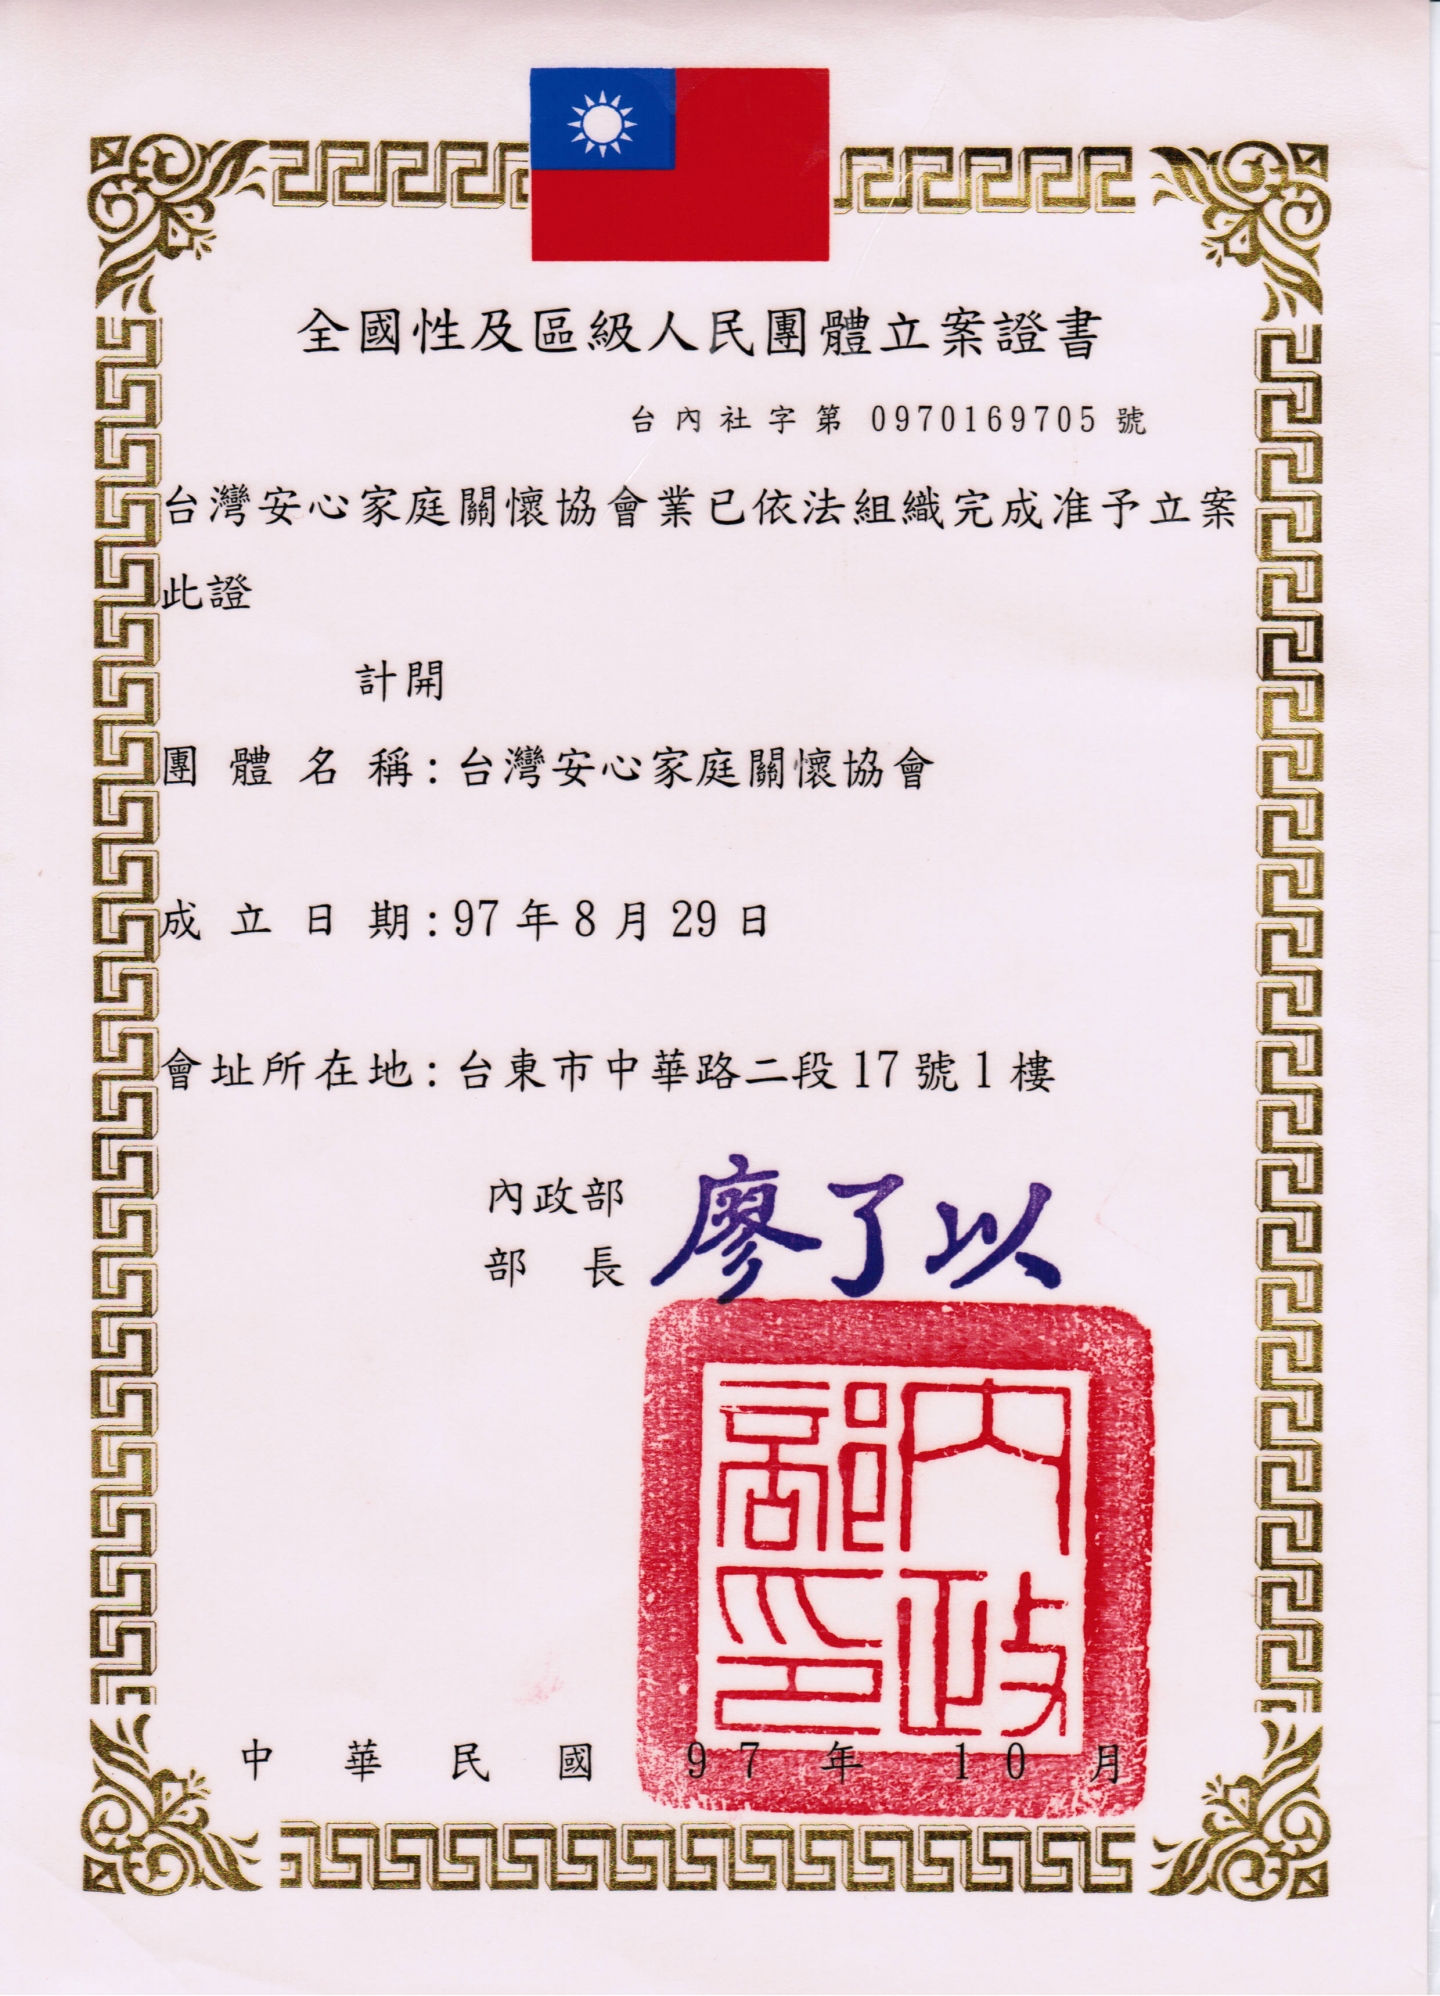 全國性及區級人民團體立案證書
台內社字第 0970169705 號
台灣安心家庭關懷協會業已依法組織完成准予立案
此證
計開
團體名稱:台灣安心家庭關懷協會
成立日期:97年8月29日
會址所在地:台東市中華路二段17號1樓
內政部
部長 廖了以
內政部印
中華民國97年10月